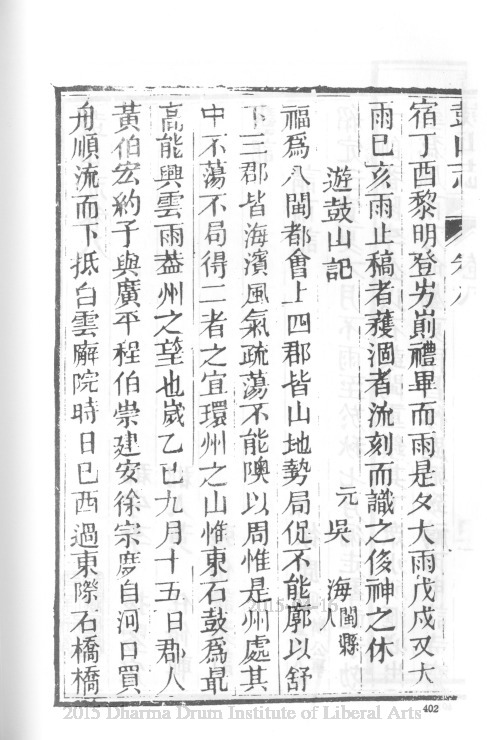 鼓山志 卷八
宿丁酉黎明登屴崱禮畢而雨是夕大雨戊戌又大
雨已亥雨止稿者穫涸者流刻而識之俊神之休
遊鼓山記
元吳 海閩縣人
福為八閩都會上四郡皆山地勢局促不能廓以舒
下三郡皆海濱風氣疏蕩不能隩以周惟是州處其
中不蕩不局得二者之宜環州之山惟東石鼓為最
高能興雲雨葢州之望也歲乙巳九月十五日郡人
黃伯宏約子與廣平程伯崇建安徐宗度自河口買
舟順流而下抵白雲廨院時日已西過東際石橋橋
402
2015 Dharma Drum Institute of Liberal Arts